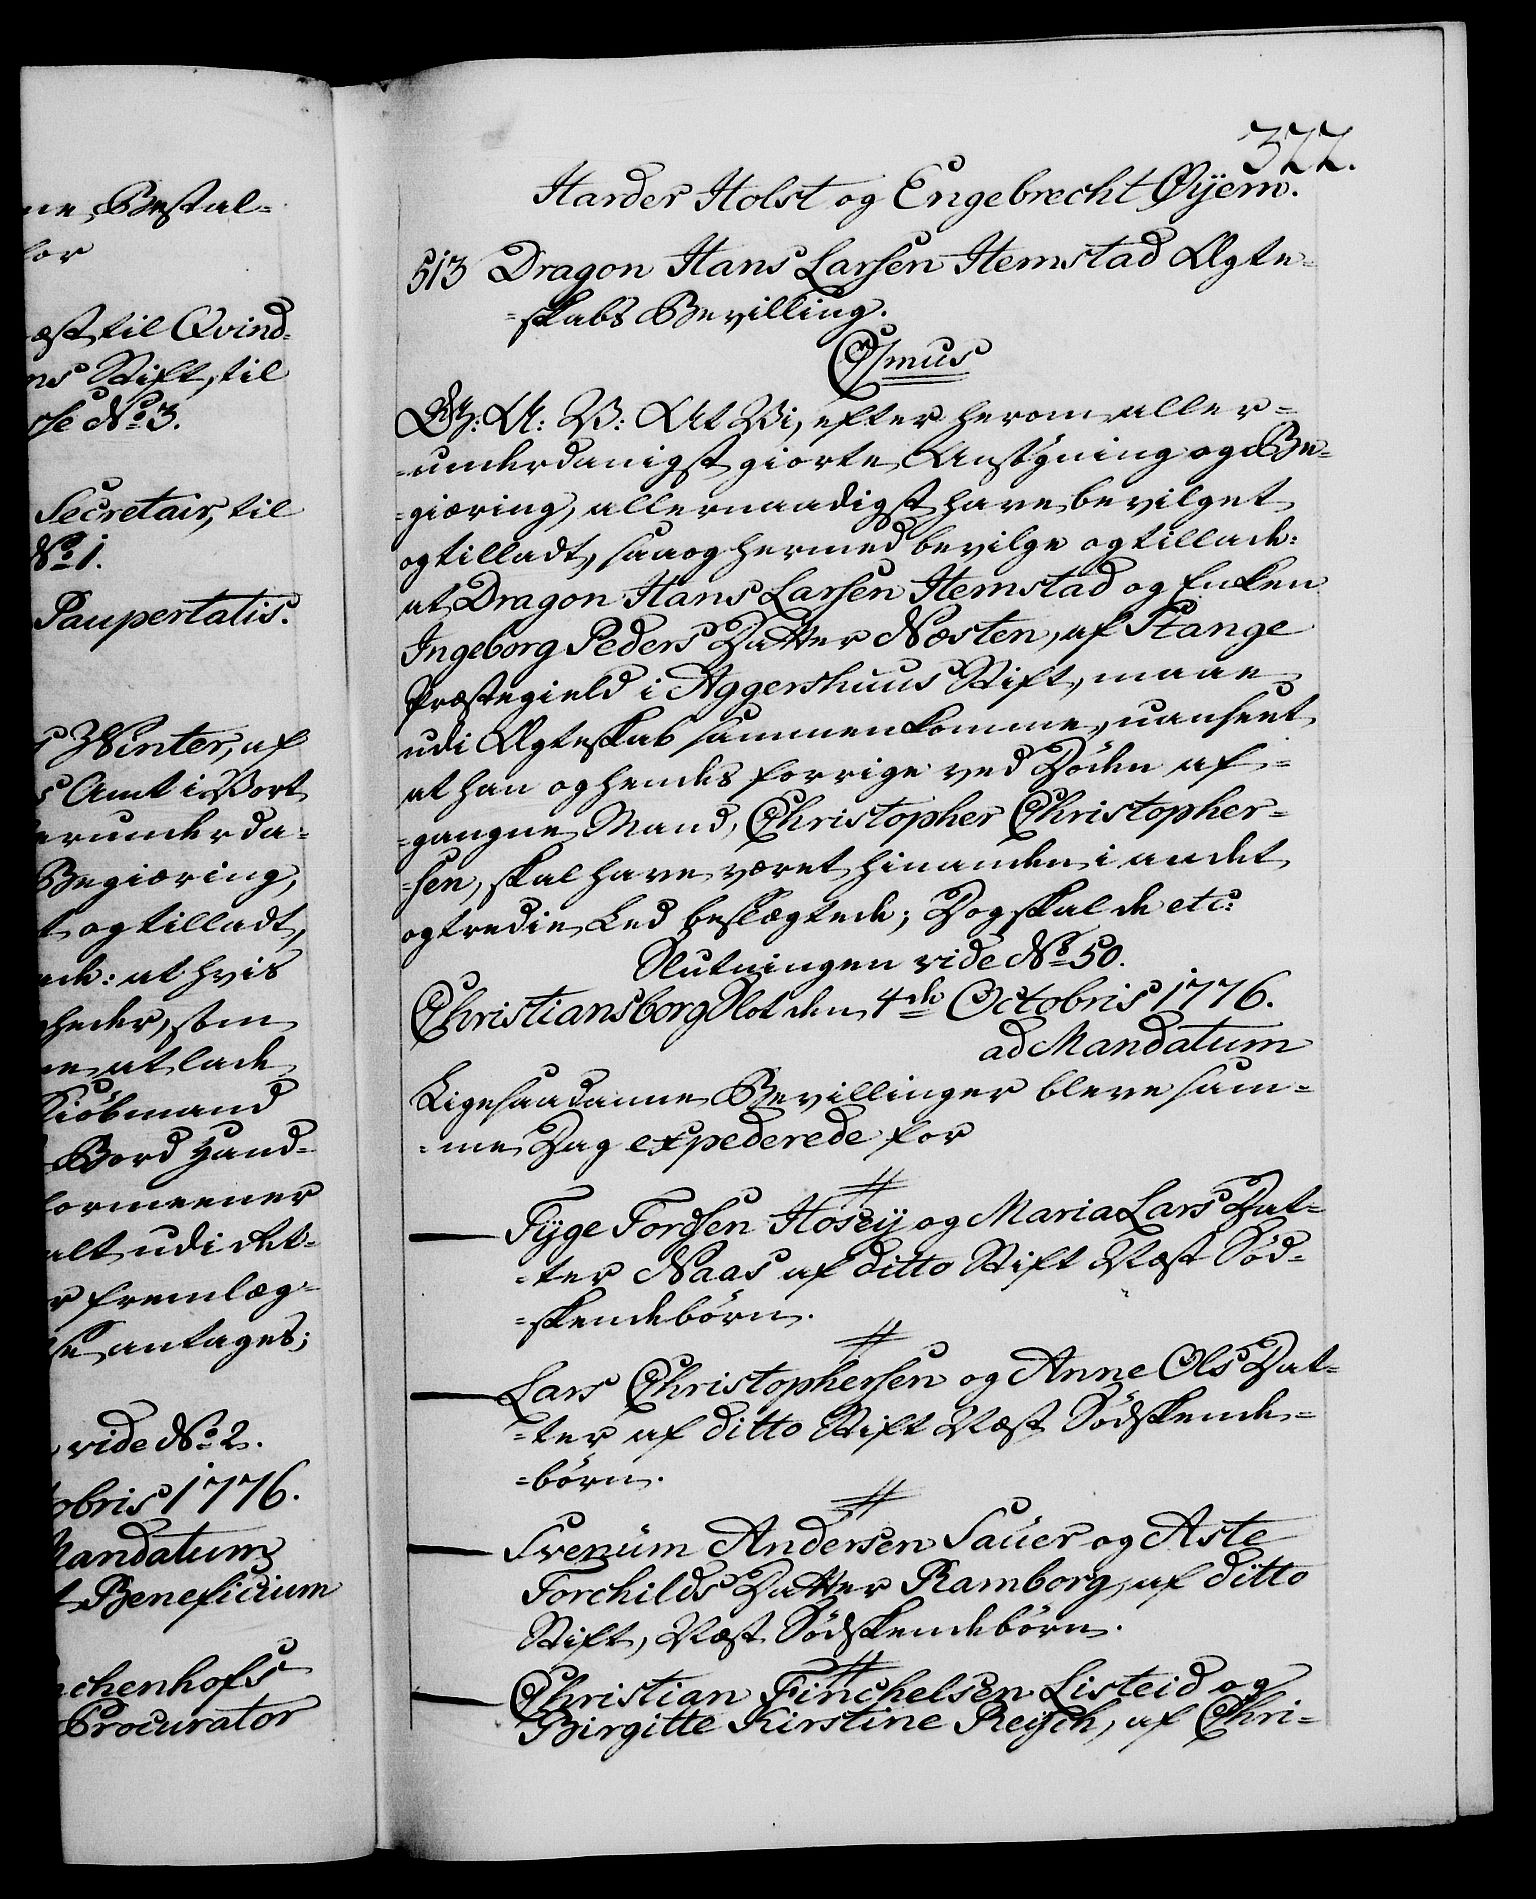 ne Bestal-
for
æst til Qvind-
ns Stift, til
rse No 3.
Secretair, til
No 1.
Paupertatis.
s Winter, af
s Amt i Vort
erunderda-
Begiæring,
t og tilladt,
ade: at hvis
heder, som
ne at lade
Kiöbmand
Bord Hand-
formeener
alt udi det-
r fremlæg-
se antages;
vide No 2.
obris 1776.
Mandatum
t Beneficium
chenhofs
Procurator
322.
Harder Holst og Engebrecht Øÿem.
513 Dragon Hans Larsen Hemstad Ægte-
-skabs Bevilling.
Osmus
G: A: V: At Vi, efter herom aller-
-underdanigst giorte Ansögning og Be-
-giæring, allernaadigst have bevilget
og tilladt, saa og hermed bevilge og tillade:
at Dragon Hans Larsen Hemstad og Enken
Ingeborg Peders Datter Næsten, af Stange
Præstegield i Aggershuus Stift, maae
udi Ægteskab sammenkomme, uanseet
at han og hendes forrige ved Döden af-
-gangne Mand, Christopher Christopher-
-sen, skal have været hinanden i andet
og tredie Led beslægtede; Dog skal de etc:
Slutningen vide No 50.
Christiansborg Slot den 4de Octobris 1776.
ad Mandatum
Ligesaadanne Bevillinger bleve sam-
-me Dag expederede for
Tÿge Tordsen Hoseÿ og Maria Lars Dat-
-ter Naas af ditto Stift Næst Söd-
-skendebörn.
Lars Christophersen og Anne Ols Dat-
-ter af ditto Stift Næst Södskende-
-börn.
Svenüm Andersen Saüer og Aste
Torchilds Datter Ramborg, af ditto
Stift, Næst Södskendebörn.
Christian Finchelsen Listeid og
Birgitte Kirstine Reÿsch, af Chri-